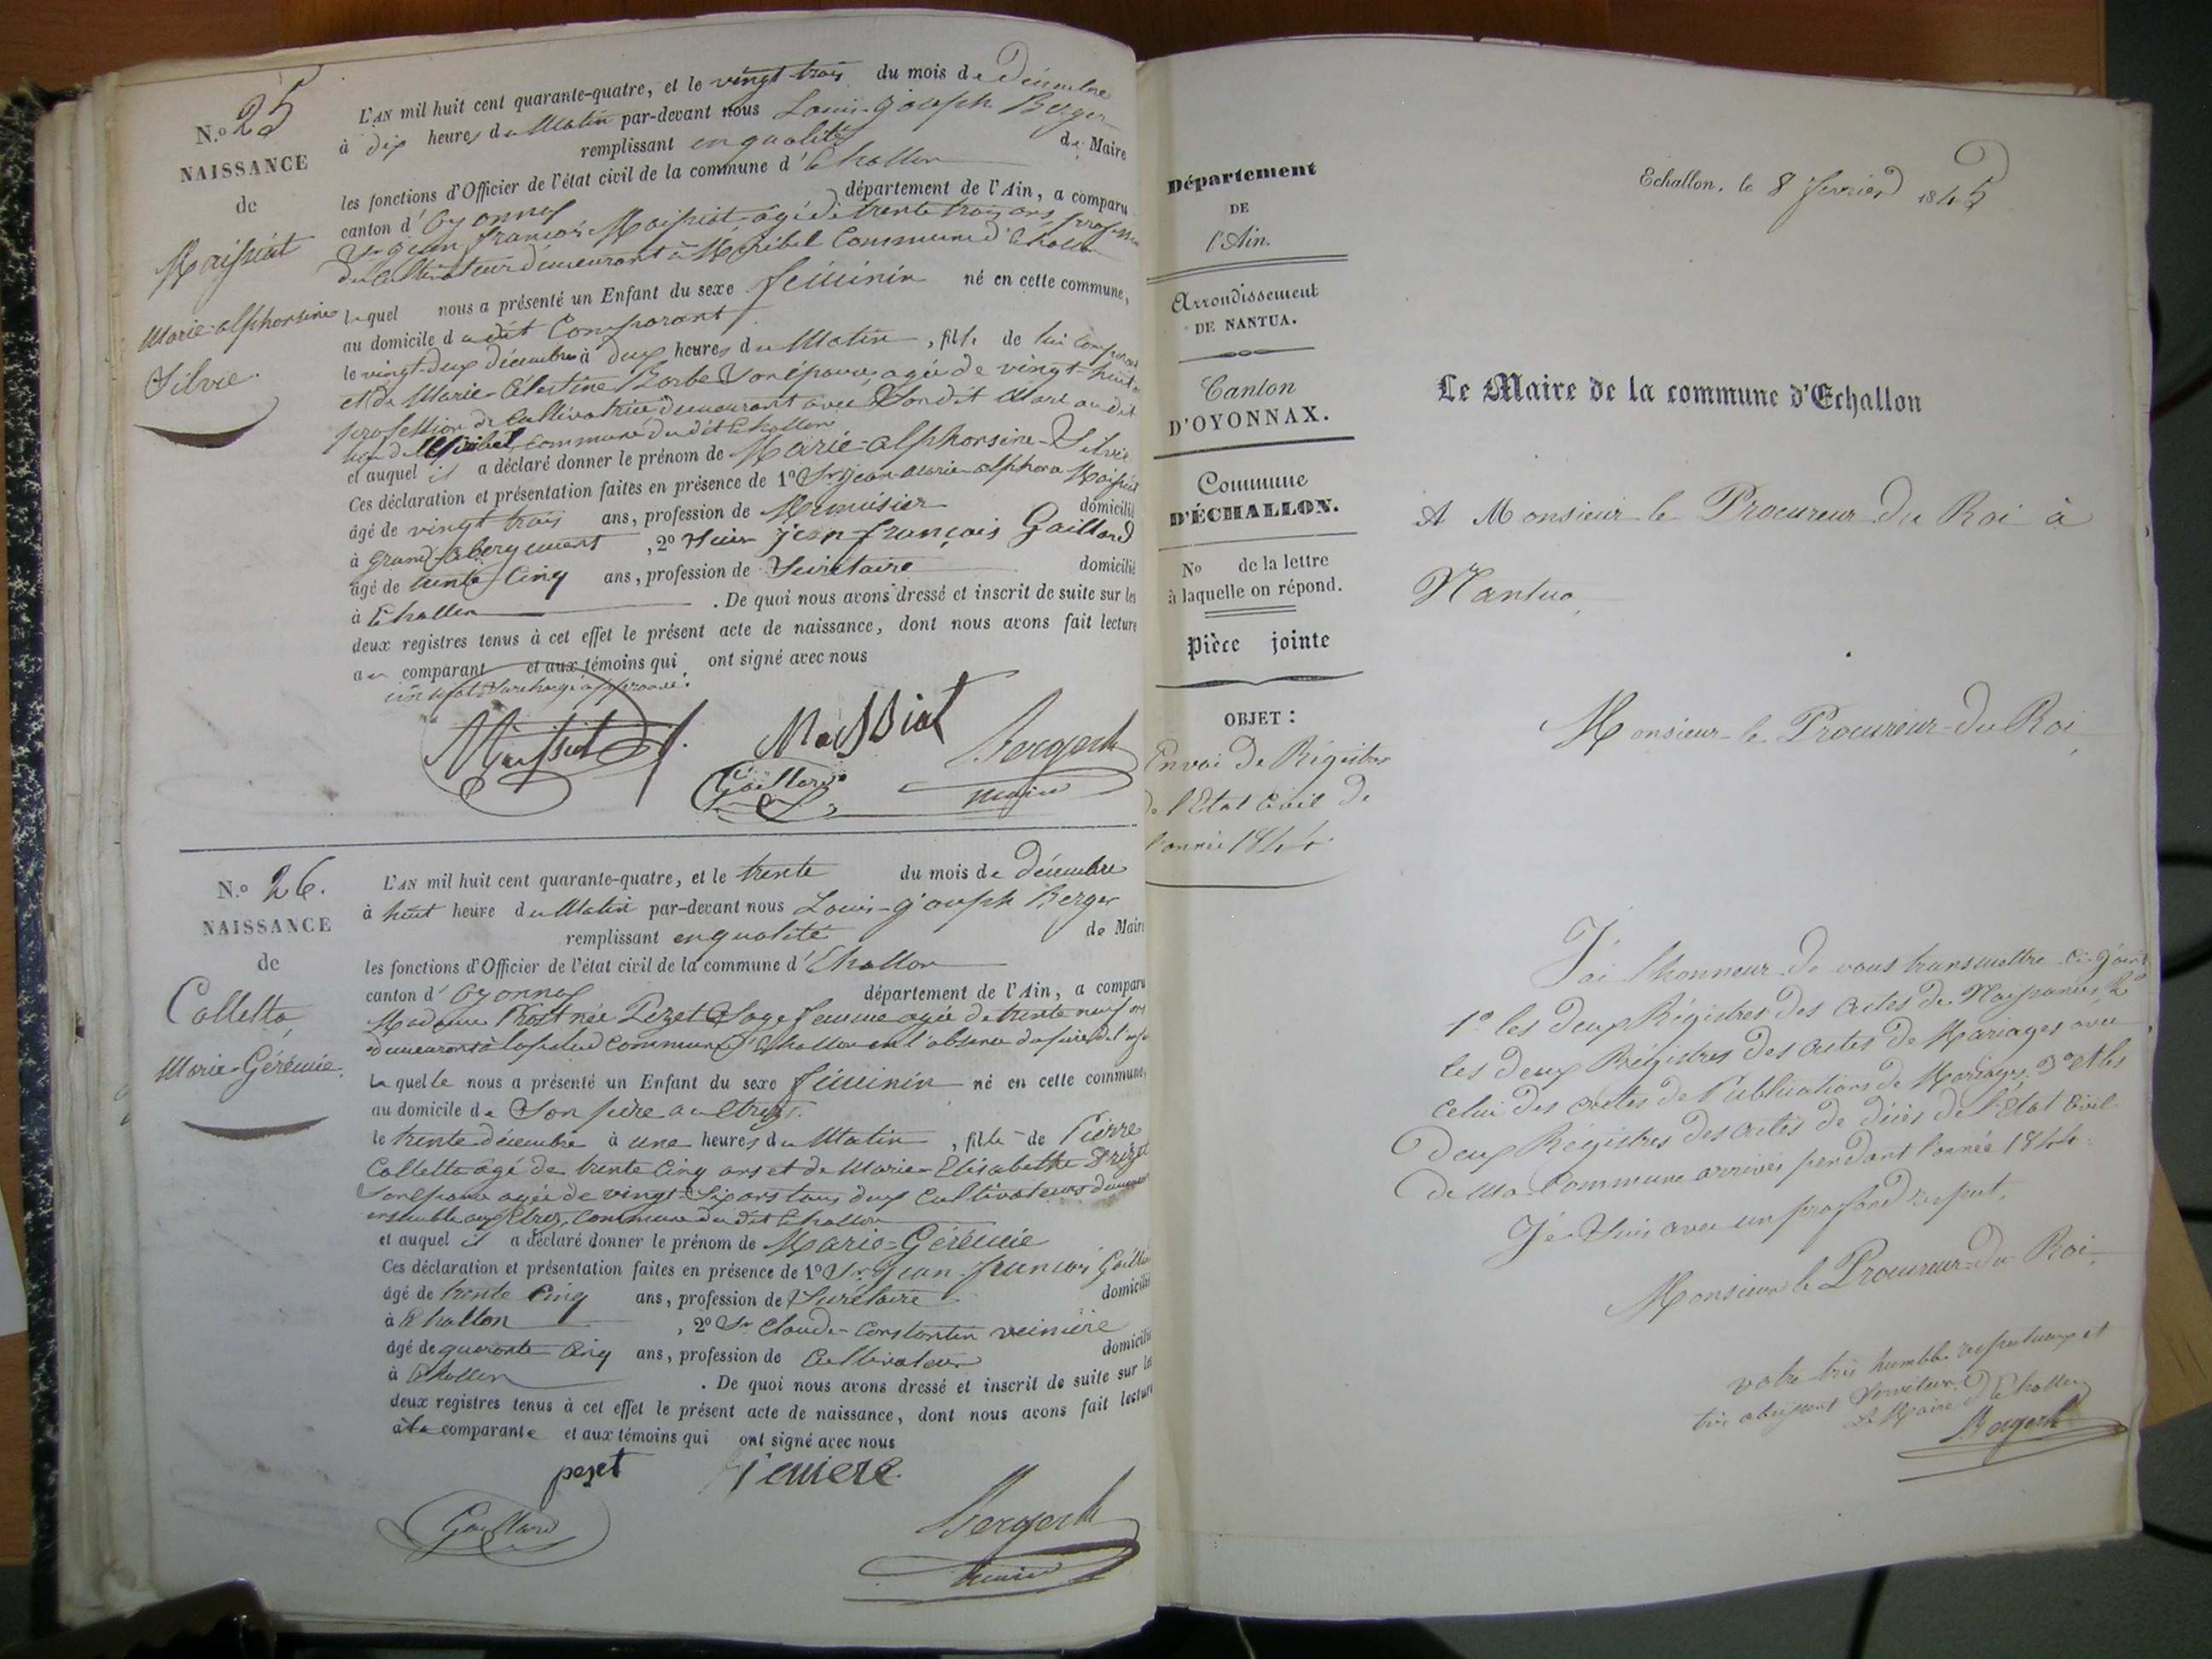 N.o 25
NAISSANCE
de
Maissiat
Marie-alphonsine
Silvie.
L'AN mil huit cent quarante-quatre, et le vingt trois du mois de Décembre
à dix heures du Matin par-devant nous Louis-joseph Berger
remplissant en qualité de Maire
les fonctions d'Officier de l'état civil de la commune d'Echallon
canton d'Oyonnax département de l'Ain, a comparu
Sr jean françois Maissiat âgé de trente trois ans, profession
de Cultivateur demeurant à Commune d'Echallon
lequel nous a présenté un Enfant du sexe féminin né en cette commune,
au domicile du dit Comparant
le vingt-deux décembre à deux heures du Matin, fille de lui Comparant
et de Marie-Célestine Barbe Son épouse, agée de vingt-huit
profession de Cultivatrice demeurant avec Son dit Mari au dit
lieu de commune du dit Echallon
et auquel il a déclaré donner le prénom de Marie-alphonsine-Silvie
Ces déclaration et présentation faites en présence de 1o Sr jean-Marie-alphonse Maissiat
âgé de vingt trois ans, profession de Menuisier domicilié
à Grand-abergement, 2o Sieur jean françois Gaillard
âgé de trente Cinq ans, profession de Secrétaire domicilié
à Echallon. De quoi nous avons dressé et inscrit de suite sur les
deux registres tenus à cet effet le présent acte de naissance, dont nous avons fait lecture
au comparant et aux témoins qui ont signé avec nous
un mot Surchargé approuvé.
Maissiat
Maissiat
Gaillard
Berger
maire
N.o 26.
NAISSANCE
de
Colletta,
Marie-Gérémie.
L'AN mil huit cent quarante-quatre, et le trente du mois de décembre
à huit heure du Matin par-devant nous Louis-joseph Berger
remplissant en qualité de Maire
les fonctions d'Officier de l'état civil de la commune d'Echallon
canton d'Oyonnax département de l'Ain, a comparu
Madame née Pezet Sage femme agée de trente neuf ans
demeurant à commune d'Echallon en l'absence du père de l'enfant
laquelle nous a présenté un Enfant du sexe féminin né en cette commune,
au domicile de Son père
le trente décembre à une heures du Matin, fille de Pierre
Colletta âgé de trente Cinq ans et de Marie-Elisabeth
Son épouse agée de vingt-Six ans tous deux Cultivateurs
ensemble commune du dit Echallon
et auquel il a déclaré donner le prénom de Marie-Gérémie
Ces déclaration et présentation faites en présence de 1o Sr jean-françois Gaillard
âgé de trente Cinq ans, profession de Secrétaire domicilié
à Echallon, 2o Sr Claude-Constantin
âgé de quarante Cinq ans, profession de Cultivateur domicilié
à Echallon. De quoi nous avons dressé et inscrit de suite sur les
deux registres tenus à cet effet le présent acte de naissance, dont nous avons fait lecture
à la comparante et aux témoins qui ont signé avec nous
pezet
Gaillard
Berger
maire
Département
DE
l'Ain.
Arrondissement
DE NANTUA.
Canton
D'OYONNAX.
Commune
D'ÉCHALLON.
No de la lettre
à laquelle on répond.
Pièce jointe
OBJET :
Envoi de Régistres
de l'Etat Civil de
l'année 1844
Echallon, le 8 février 1845
Le Maire de la commune d'Echallon
A Monsieur le Procureur du Roi à
Nantua,
Monsieur le Procureur du Roi,
J'ai l'honneur de vous transmettre ci-joint
1o les deux Régistres des actes de Naissances, 2o
les deux Régistres des actes de Mariages avec
celui des actes de Publications de Mariages, 3o et les
deux Régistres des actes de décès de l'Etat Civil
de Ma Commune arrivés pendant l'année 1844.
Je Suis avec un profond respect,
Monsieur le Procureur du Roi,
votre très humble respectueux et
très obéissant Serviteur.
Le Maire d'Echallon
Berger